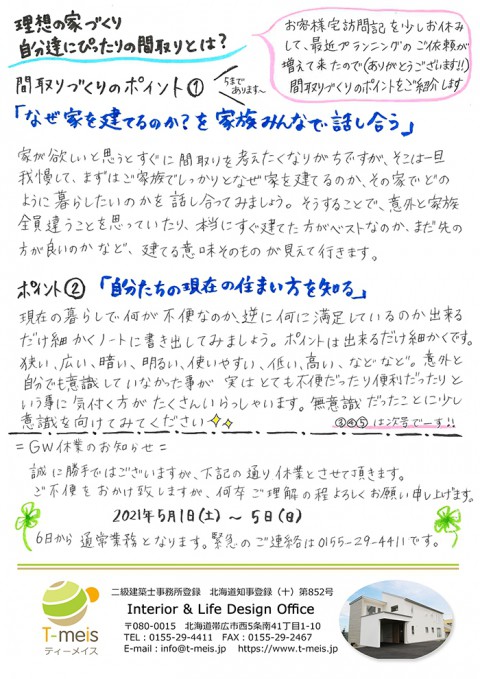 理想の家づくり
自分達にぴったりの間取りとは？
お客様宅訪問記を少しお休み
して、最近プランニングのご依頼が
増えて来たので(ありがとうございます!!)
間取りづくりのポイントをご紹介します
間取りづくりのポイント①
5まで
あります〜
「なぜ家を建てるのか？を家族みんなで話し合う」
家が欲しいと思うとすぐに間取りを考えたくなりがちですが、そこは一旦
我慢して、まずはご家族でしっかりとなぜ家を建てるのか、その家でどの
ように暮らしたいのかを話し合ってみましょう。そうすることで、意外と家族
全員違うことを思っていたり、本当にすぐ建てた方がベストなのか、まだ先の
方が良いのかなど、建てる意味そのものが見えて行きます。
ポイント②「自分たちの現在の住まい方を知る」
現在の暮らしで何が不便なのか、逆に何に満足しているのか出来る
だけ細かくノートに書き出してみましょう。ポイントは出来るだけ細かくです。
狭い、広い、暗い、明るい、使いやすい、低い、高い、などなど。意外と
自分でも意識していなかった事が実はとても不便だったり便利だったりと
いう事に気付く方がたくさんいらっしゃいます。無意識だったことに少し
意識を向けてみてください
③④⑤は次号でーす!!
=GW休業のお知らせ=
誠に勝手ではございますが、下記の通り休業とさせて頂きます。
ご不便をおかけ致しますが、何卒ご理解の程よろしくお願い申し上げます。
2021年5月1日(土)〜5日(日)
6日から通常業務となります。緊急のご連絡は0155-29-4411です。
T-meis
ティーメイス
二級建築士事務所登録 北海道知事登録（十）第852号
Interior & Life Design Office
〒080-0015 北海道帯広市西5条南41丁目1-10
TEL：0155-29-4411 FAX：0155-29-2467
E-mail：info@t-meis.jp https://www.t-meis.jp